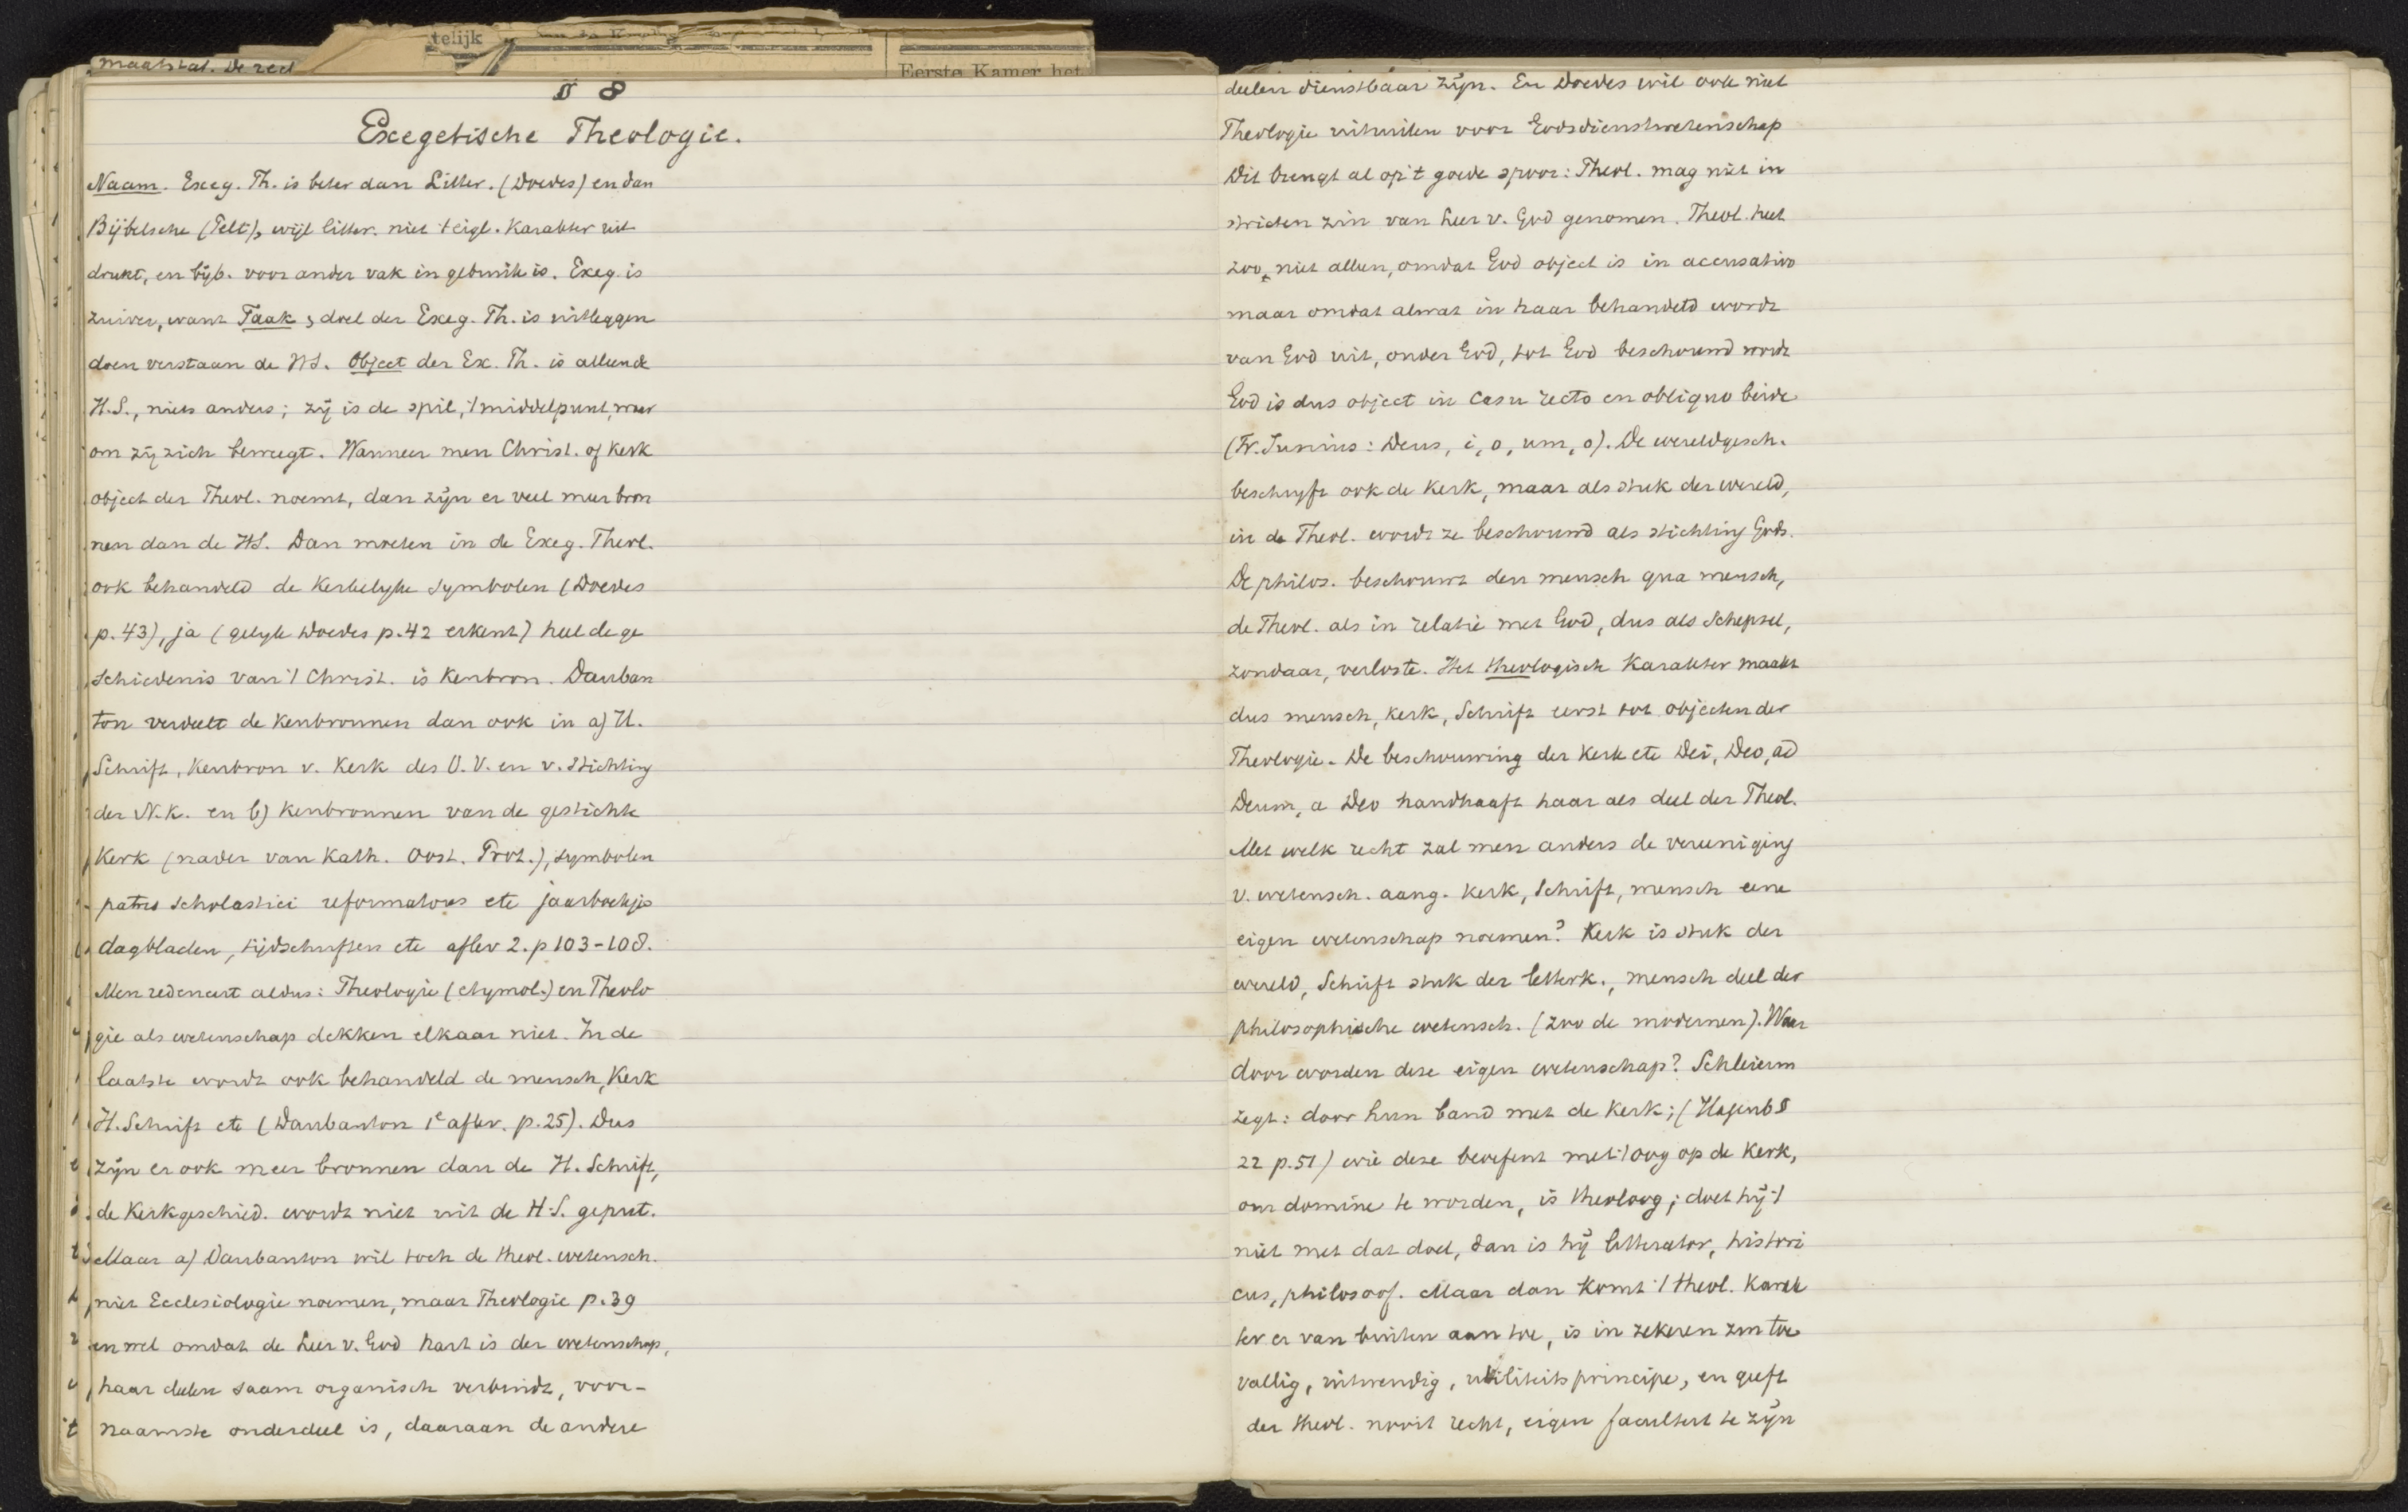 telijk
Eerste Kamer het
maatstaf. De red
§ 8
Exegetische Theologie.
Naam. Exeg. Th. is beter dan Litter. (Doedes) en dan
Bijbelsche (Pelt), wijl litter. niet 't eigl. Karakter uit
drukt, en bijb. voor ander vak in gebruik is. Exeg. is
zuiver, want Taak & doel der Exeg. Th. is uitleggen
doen verstaan de HS. Object der Ex. Th. is alleen de
H.S., niets anders; zij is de spil, 't middelpunt, waar
om zij zich beweegt. Wanneer men Christ. of Kerk
object der Theol. noemt, dan zijn er veel meer bron
nen dan de HS. Dan moeten in de Exeg. Theol.
ook behandeld de Kerkelijke Symbolen (Doedes
p. 43), ja (gelijk Doedes p. 42 erkent) heel de ge
schiedenis van 't Christ. is Kenbron. Dauban
ton verdeelt de Kenbronnen dan ook in a) H.
Schrift, Kenbron v. Kerk des O. V. en v. Stichting
der N. K. en b) Kenbronnen van de gestichte
Kerk (nader van Kath. Oost. Prot.), symbolen
patres scholastici reformatores etc jaarboekjes
dagbladen, tijdschriften etc aflev 2. p 103-108.
Men redeneert aldus: Theologie (etymol.) en Theolo
gie als wetenschap dekken elkaar niet. In de
laatste wordt ook behandeld de mensch, Kerk
H. Schrift etc (Daubanton 1e aflev. p. 25). Dus
zijn er ook meer bronnen dan de H. Schrift,
de Kerkgeschied. wordt niet uit de H.S. geput.
Maar a) Daubanton wil toch de theol. wetensch.
niet Ecclesiologie noemen, maar Theologie p. 39
en wel omdat de Leer v. God hart is der wetenschap,
haar deelen saam organisch verbindt, voor-
naamste onderdeel is, daaraan de andere
deelen dienstbaar zijn. En Doedes wil ook niet
Theologie uitruilen voor Godsdienstwetenschap
Dit brengt al op 't goede spoor: Theol. mag niet in
stricten zin van Leer v. God genomen. Theol. heet
zoo, niet alleen, omdat God object is in accusativo
maar omdat alwat in haar behandeld wordt
van God uit, onder God, tot God beschouwd wordt
God is dus object in casu recto en obliquo beide
(Fr. Junius: Deus, i, o, um, o). De wereldgesch.
beschrijft ook de Kerk, maar als stuk der wereld,
in de Theol. wordt ze beschouwd als stichting Gods.
De philos. beschouwt den mensch qua mensch,
de Theol. als in relatie met God, dus als Schepsel,
zondaar, verloste. Het theologisch Karakter maakt
dus mensch, Kerk, Schrift eerst tot objecten der
Theologie. De beschouwing der Kerk etc Dei, Deo, ad
Deum, a Deo handhaaft haar als deel der Theol.
Met welk recht zal men anders de vereeniging
v. wetensch. aang. Kerk, Schrift, mensch eene
eigen wetenschap noemen? Kerk is stuk der
wereld, Schrift stuk der letterk., mensch deel der
philosophische wetensch. (zoo de modernen). Waar
door worden deze eigen wetenschap? Schleierm
zegt: door hun band met de Kerk; (Hagenb §
22 p. 51) wie deze beoefent met 't oog op de Kerk,
om domine te worden, is theoloog; doet hij 't
niet met dat doel, dan is hij litterator, histori
cus, philosoof. Maar dan komt 't theol. Karak
ter er van buiten aan toe, is in zekeren zin toe
vallig, uitwendig, utiliteitsprincipe, en geeft
der theol. nooit recht, eigen faculteit te zijn